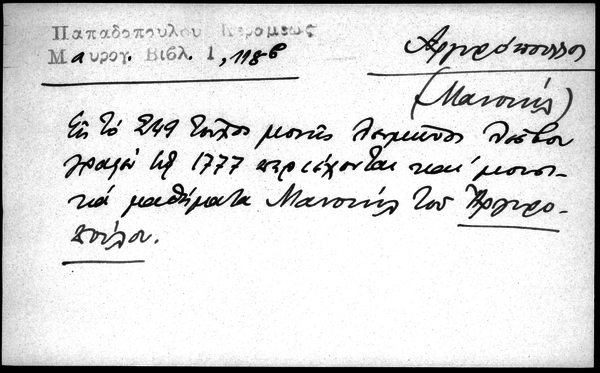 Παπαδοπουλου Κεραμεως
Μαυρογ. Βιβλ. 1, 118β
Αργυρόπουλος
(Μανουήλ)
Εἰς τό 249 τεῦχος μονῆς Λειμῶνος Λέσβου
γραφὲν τῷ 1777 περιέχονται καί μουσι-
κά μαθήματα Μανουήλ τοῦ Ἀργυρο-
πούλου.